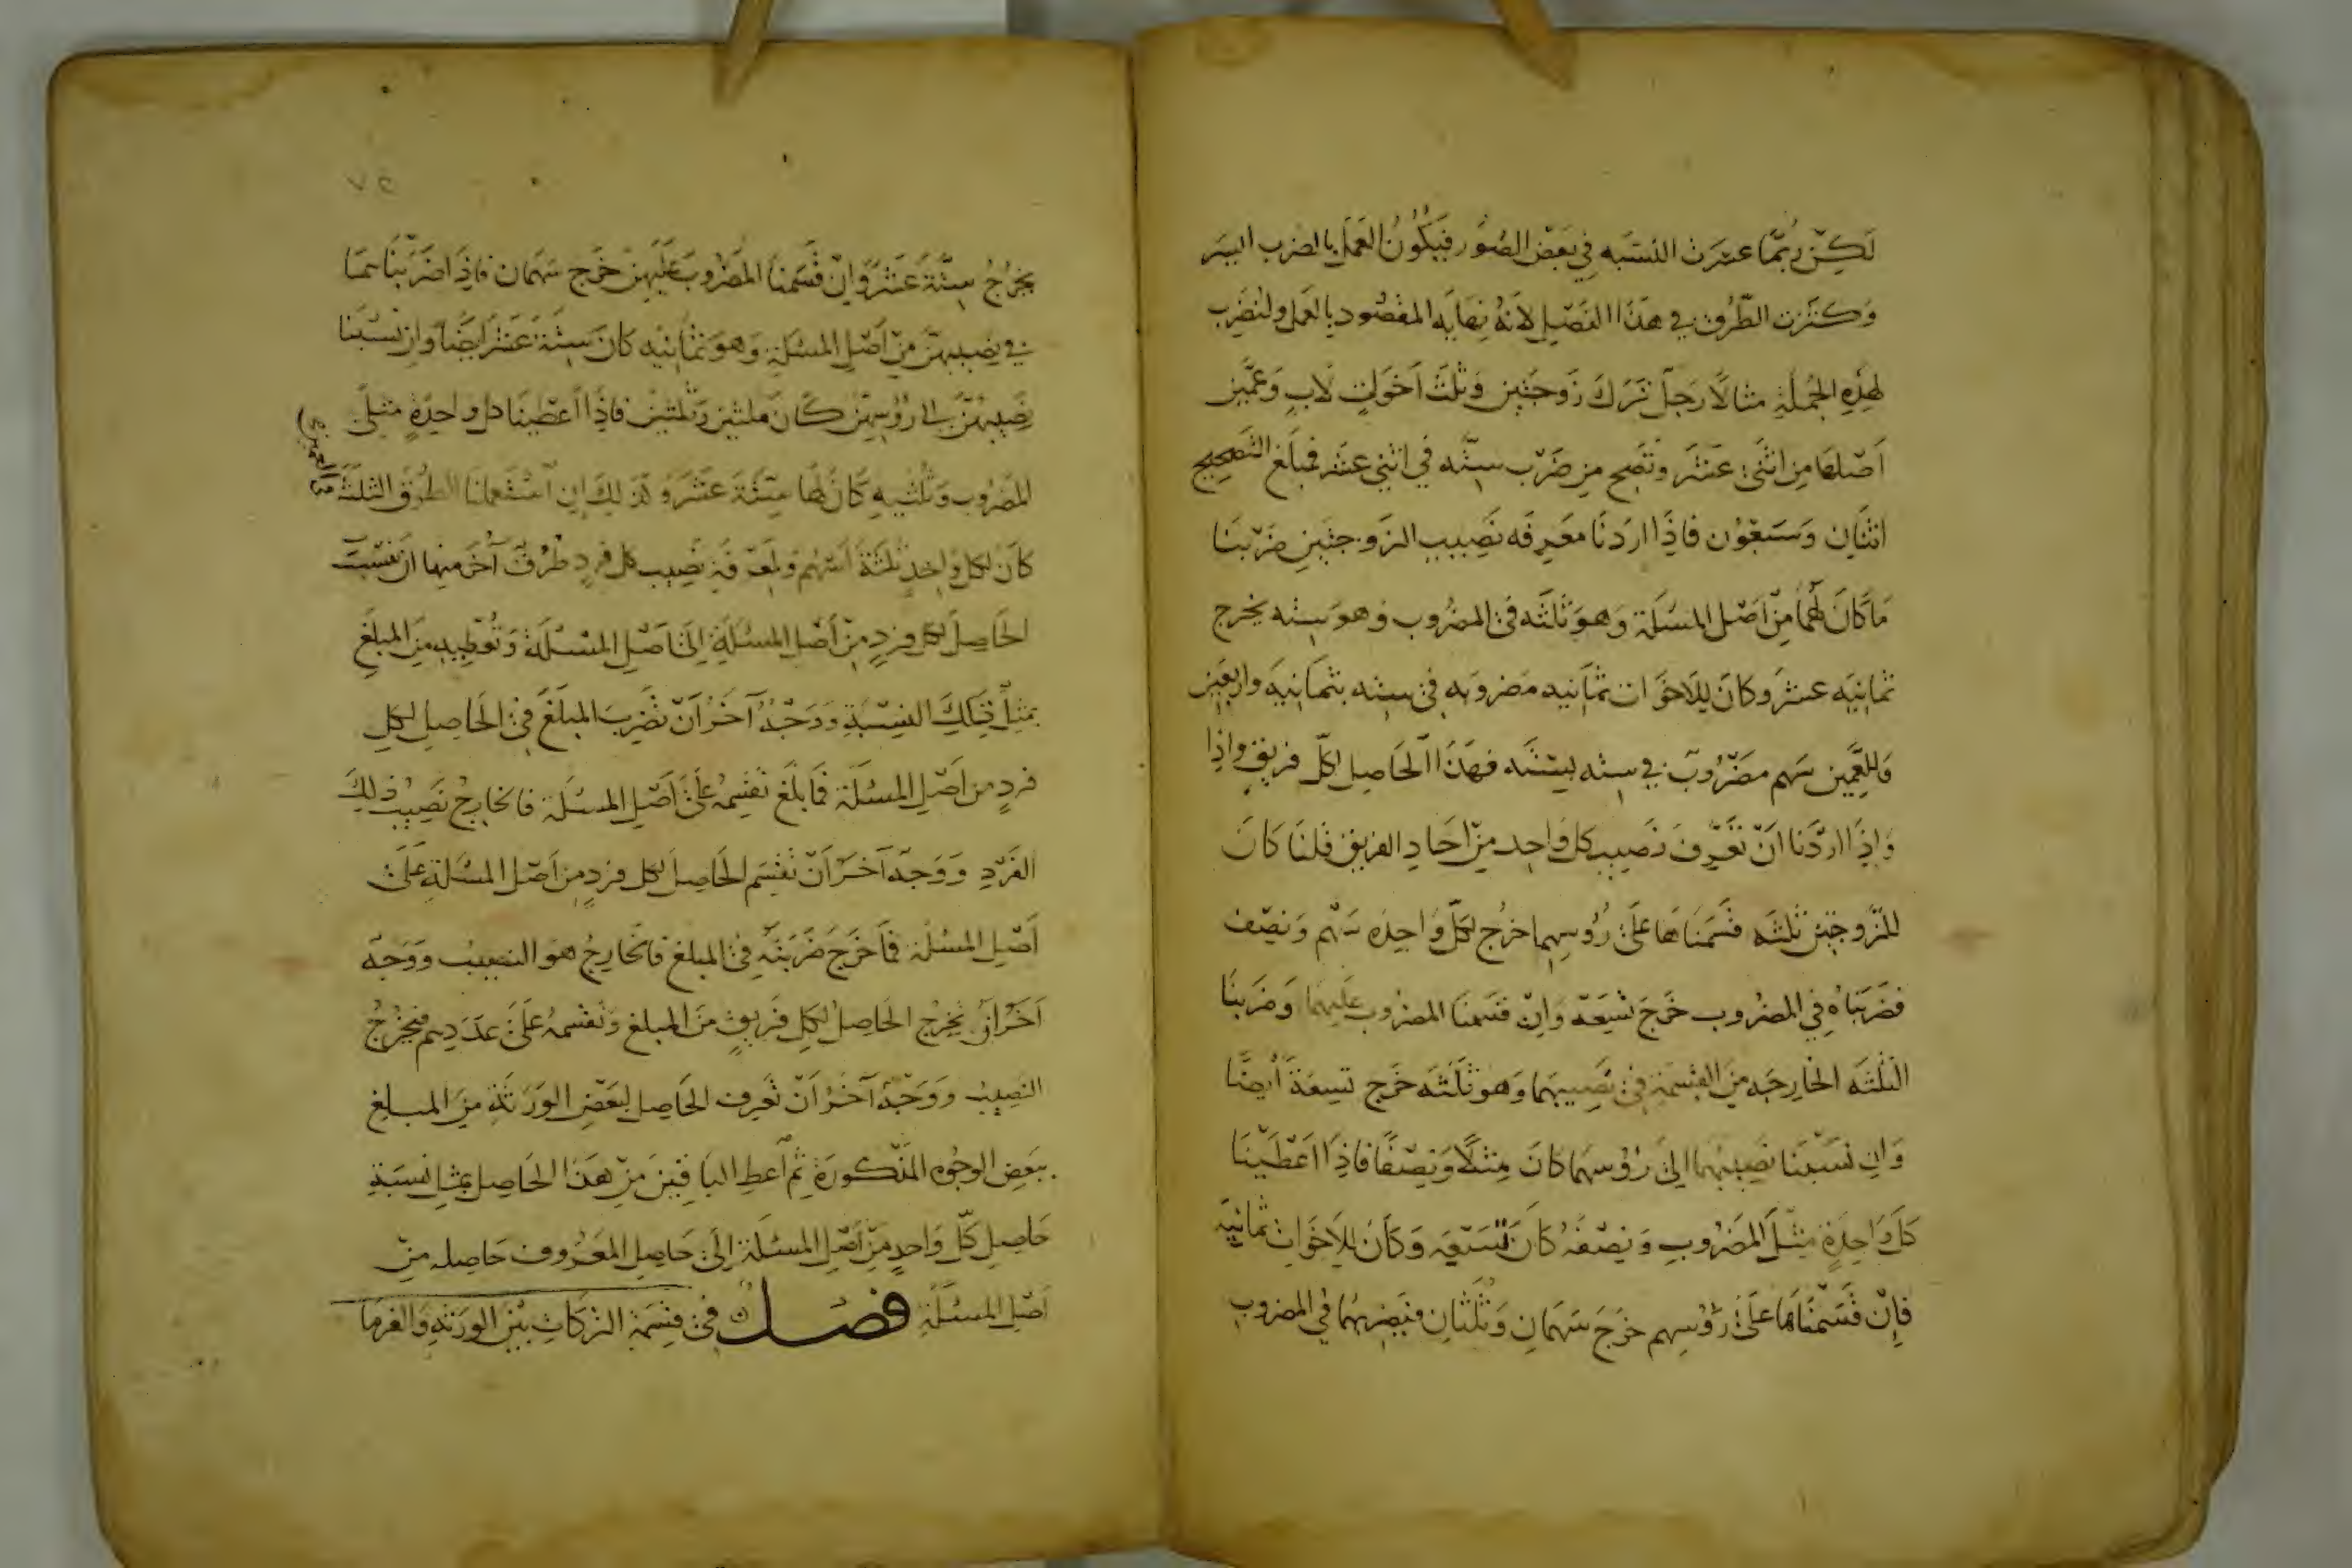 لَكِنْ رُبَّمَا عسرَت النسبَه في بَعْض الصُوَر فيَكُونُ العَمَل بالضرب ايسَر
وَكثرَت الطُرُق في هَذَا الفَصْل لانهُ نِهَايَه المقصُود بالعَمل ولنَضرِب
لِهَذِهِ الجُملَةِ مثالاً رَجل تَرَكَ زَوجَتَيْن وَثلثَ اَخَوَاتٍ لابٍ وَعَمَّين
اَصْلهَا مِن اثنَي عَشَر وتصِح مِن ضَرْب ستّه في اثنى عشر فمبلَغ التصحِيح
اثنَانِ وَسَبعُون فاذَا اردنَا معَرِفَه نَصِيب الزَوجتَين ضَرَبنَا
مَا كَانَ لهُمَا مِنْ اَصْل المسْئَلَة وَهوَ ثلَثَه في المضرُوب وَهوَ سِتَه يخرج
ثمانيَه عشرَ وكانَ للاَخوَات ثمَانيه مضرُوبه في ستِه بثمَانيَه واربعَين
وَللعَمَّين سَهم مضْرُوبٌ في سته بستَّه فهَذَا الحَاصِل لكلّ فريقٍ واذا
وَاِذَا ارَدْنَا انْ نعَرِفَ نَصِيب كل وَاحِد مِنْ احَادِ الفريق قلنَا كَانَ
للزَوجتَين ثلثَه قسَمنَاهَا عَلَى رُؤسِهما خرُج لكلّ وَاحِدَه سَهْم وَنصْف
فضَرَبناهُ في المضرُوب خرَجَ تسْعَة وَاِنْ قسَمنَا المضرُوب عَليهمَا وَضرَبنَا
الثلثَه الخارِجَه مِنَ القِسمَةِ في نَصِيبهمَا وَهوَ ثلَثَه خرَج تسعَة ايضًا
وَان نسَبْنَا نصيبهُمَا الى رؤُسهمَا كانَ مِثلًا وَنِصْفًا فاذَا اعَطَيْنَا
كلَ وَاحِدَةٍ مثْلَ المضرُوبِ وَنصْفَهُ كانَ تسْعَه وَكانَ للاَخوَات ثمانيَه
فاِنْ قَسَمْنَاهَا عَلَى رُؤسِهم خرَجَ سَهمَانِ وَثلثَانِ فنَضربهُما في المضرُوب
يخرُجُ ستّةَ عَشَرَ وَاِنْ قَسَمنَا المضرُوبَ عَلَيْهِنّ خرَجَ سَهمَان فاذَا ضَرَبنَاهمَا
في نصِيبهنّ مِنْ اَصْلِ المسْئَلَةِ وَهوَ ثمَانِيَه كانَ ستّةَ عَشَرَ ايضًا وَان نسَبْنَا
نصِيبهُنّ الى رُؤسِهِنّ كانَ مثلَيْن وَثلثَيْن فاذَا اعْطَينَا كل واحِدَةٍ مثلَي
المضرُوب وَثلُثَيهِ كانَ لهَا ستّةَ عَشَرَ وَكذَلكَ اِن استَعملنَا الطُرُقَ الثلثَةَ
كانَ لكل واحِدٍ ثلثَةَ اَسْهُم ولمَعرفَةِ نَصِيب كل فردٍ طُرُقٌ اُخَر منهَا انْ تَنسُبَ
الحَاصِلَ لكل فردٍ مِنْ اَصْلِ المسئلَةِ اِلىَ اَصْلِ المسْئلَةِ وَتُعْطِيهِ مِنَ المبلَغِ
بمثلِ تِلكَ النِسْبَةِ وَوَجْهٌ آخَرُ اَنْ تضرِبَ المبلَغَ في الحَاصِل لكلِ
فردٍ مِن اَصْلِ المسْئلَة فمَا بَلَغَ تقسِمهُ عَلَى اَصْلِ المسئلَة فالخارِجُ نَصِيبُ ذلِكَ
الفَرْدِ وَوَجهٌ آخَر اَنْ تقسِم الحَاصِلَ لكل فردٍ مِن اَصْل المسْئَلَةِ عَلَى
اَصْلِ المسْئلَة فمَا خَرَجَ ضَرَبتَه في المبلغ فالخارِجُ هوَ النصِيبُ وَوَجهٌ
آخَرُ اَنْ تخرِج الحَاصِلَ لكلِ فَريقٍ مِنَ المبلَغ وَتقسمهُ عَلَى عَدَدِهم فيخرُجُ
النصِيبُ وَوَجْهٌ آخَرُ اَنْ تَعرِف الحَاصِل لبَعْضِ الوَرَثَةِ مِنَ المبلغ
ببَعضِ الوجُوهِ المَذْكورَةِ ثمّ اَعطِ البَاقِينَ مِنْ هَذَا الحَاصِل بمثل نسَبَةِ
حَاصِل كلّ وَاحدٍ مِنْ اَصْلِ المسئلَة اِلىَ حَاصِل المعَرُوف حَاصِله مِنْ
اَصْلِ المسْئَلَةِ فصل في قسمَة التركَاتِ بَيْنَ الورَثهِ وَالغرمَا